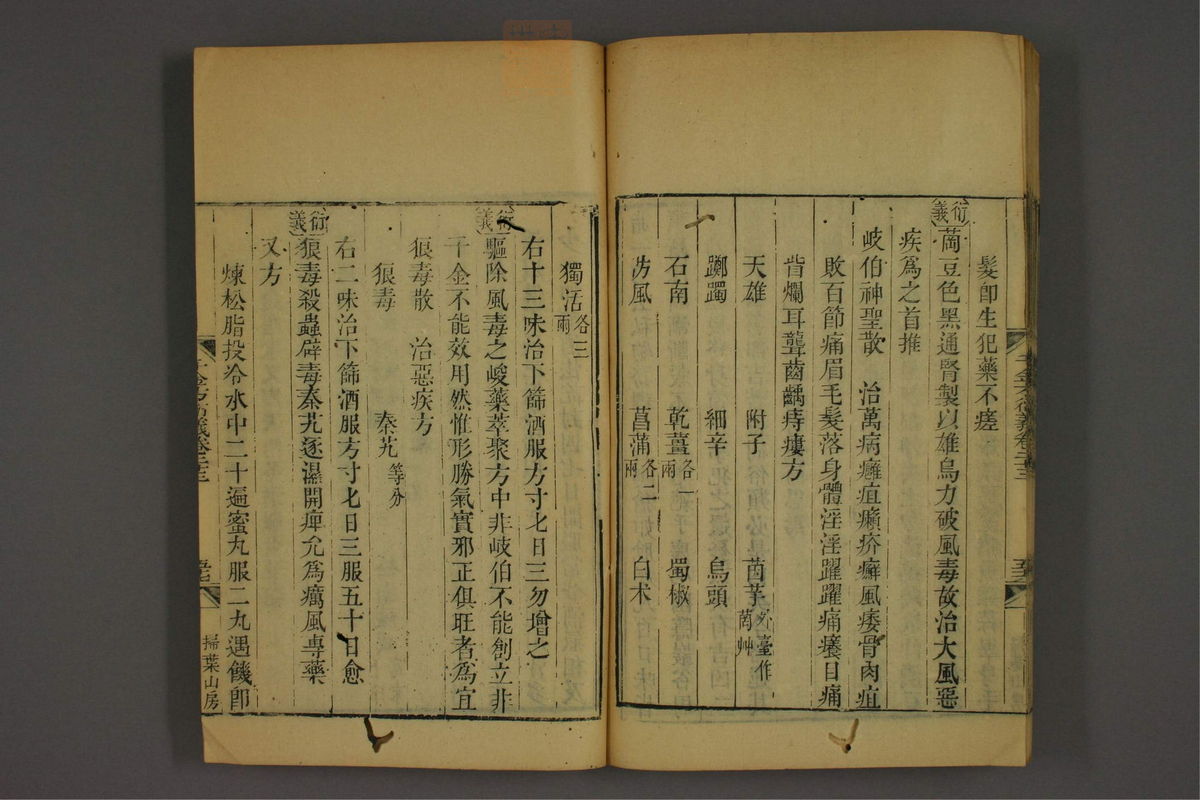 髮卽生犯藥不瘥
衍義 䓯豆色黑通腎製以雄烏力破風毒故治大風惡
疾爲之首推
岐伯神聖散　治萬病癰疽癩疥癬風痿骨肉疽
敗百節痛眉毛髮落身體淫淫躍躍痛癢目痛
眥爛耳聾齒齲痔瘻方
天雄　附子　茵芋 外臺作䓯艸
躑躅　細辛　烏頭
石南　乾薑 各一兩　蜀椒
防風　菖蒲 各二兩　白术
獨活 各三兩
右十三味治下篩酒服方寸匕日三勿增之
衍義 驅除風毒之峻藥萃聚方中非岐伯不能創立非
千金不能效用然惟形勝氣實邪正俱旺者爲宜
狼毒散　治惡疾方
狼毒　秦艽 等分
右二味治下篩酒服方寸匕日三服五十日愈
衍義 狼毒殺蟲辟毒秦艽逐濕開痺允爲癘風專藥
又方
煉松脂投冷水中二十遍蜜丸服二丸遇饑卽
千金方衍義卷二十三
掃葉山房